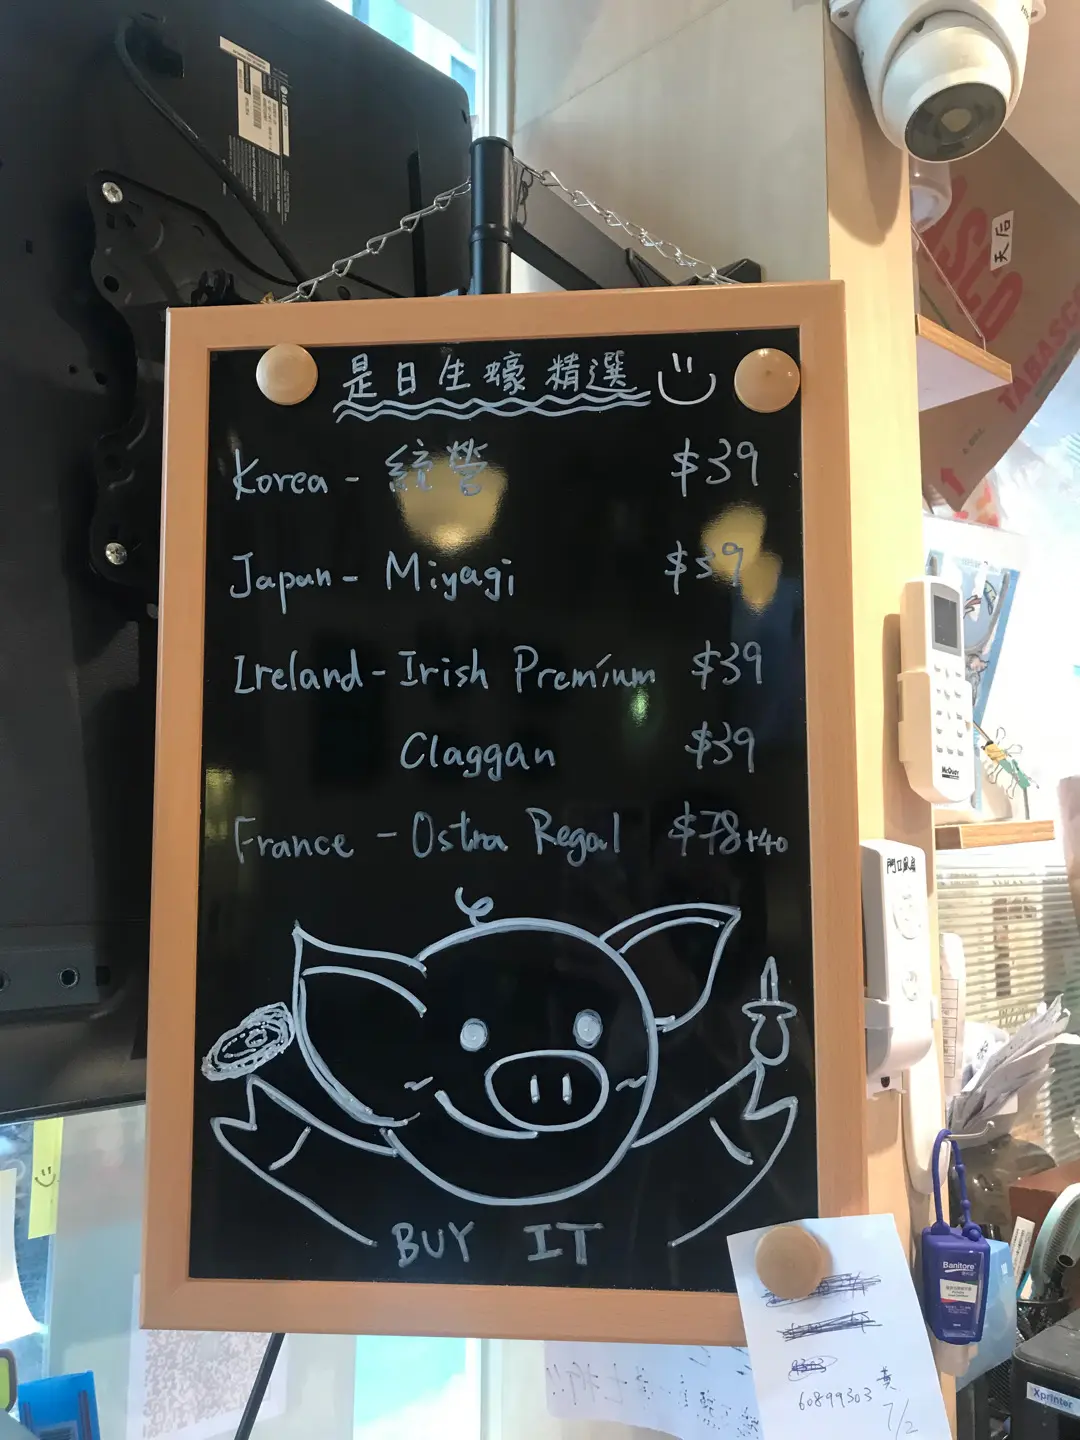 是日生蠔精選
Korea - 統營 $39
Japan - Miyagi $39
Ireland - Irish Premium $39
Claggan $39
France - Ostra Regal $78+40
BUY IT
天后
TABASCO
McQuay
門口風扇
Banitore
Xprinter
60899303 黃
7/2